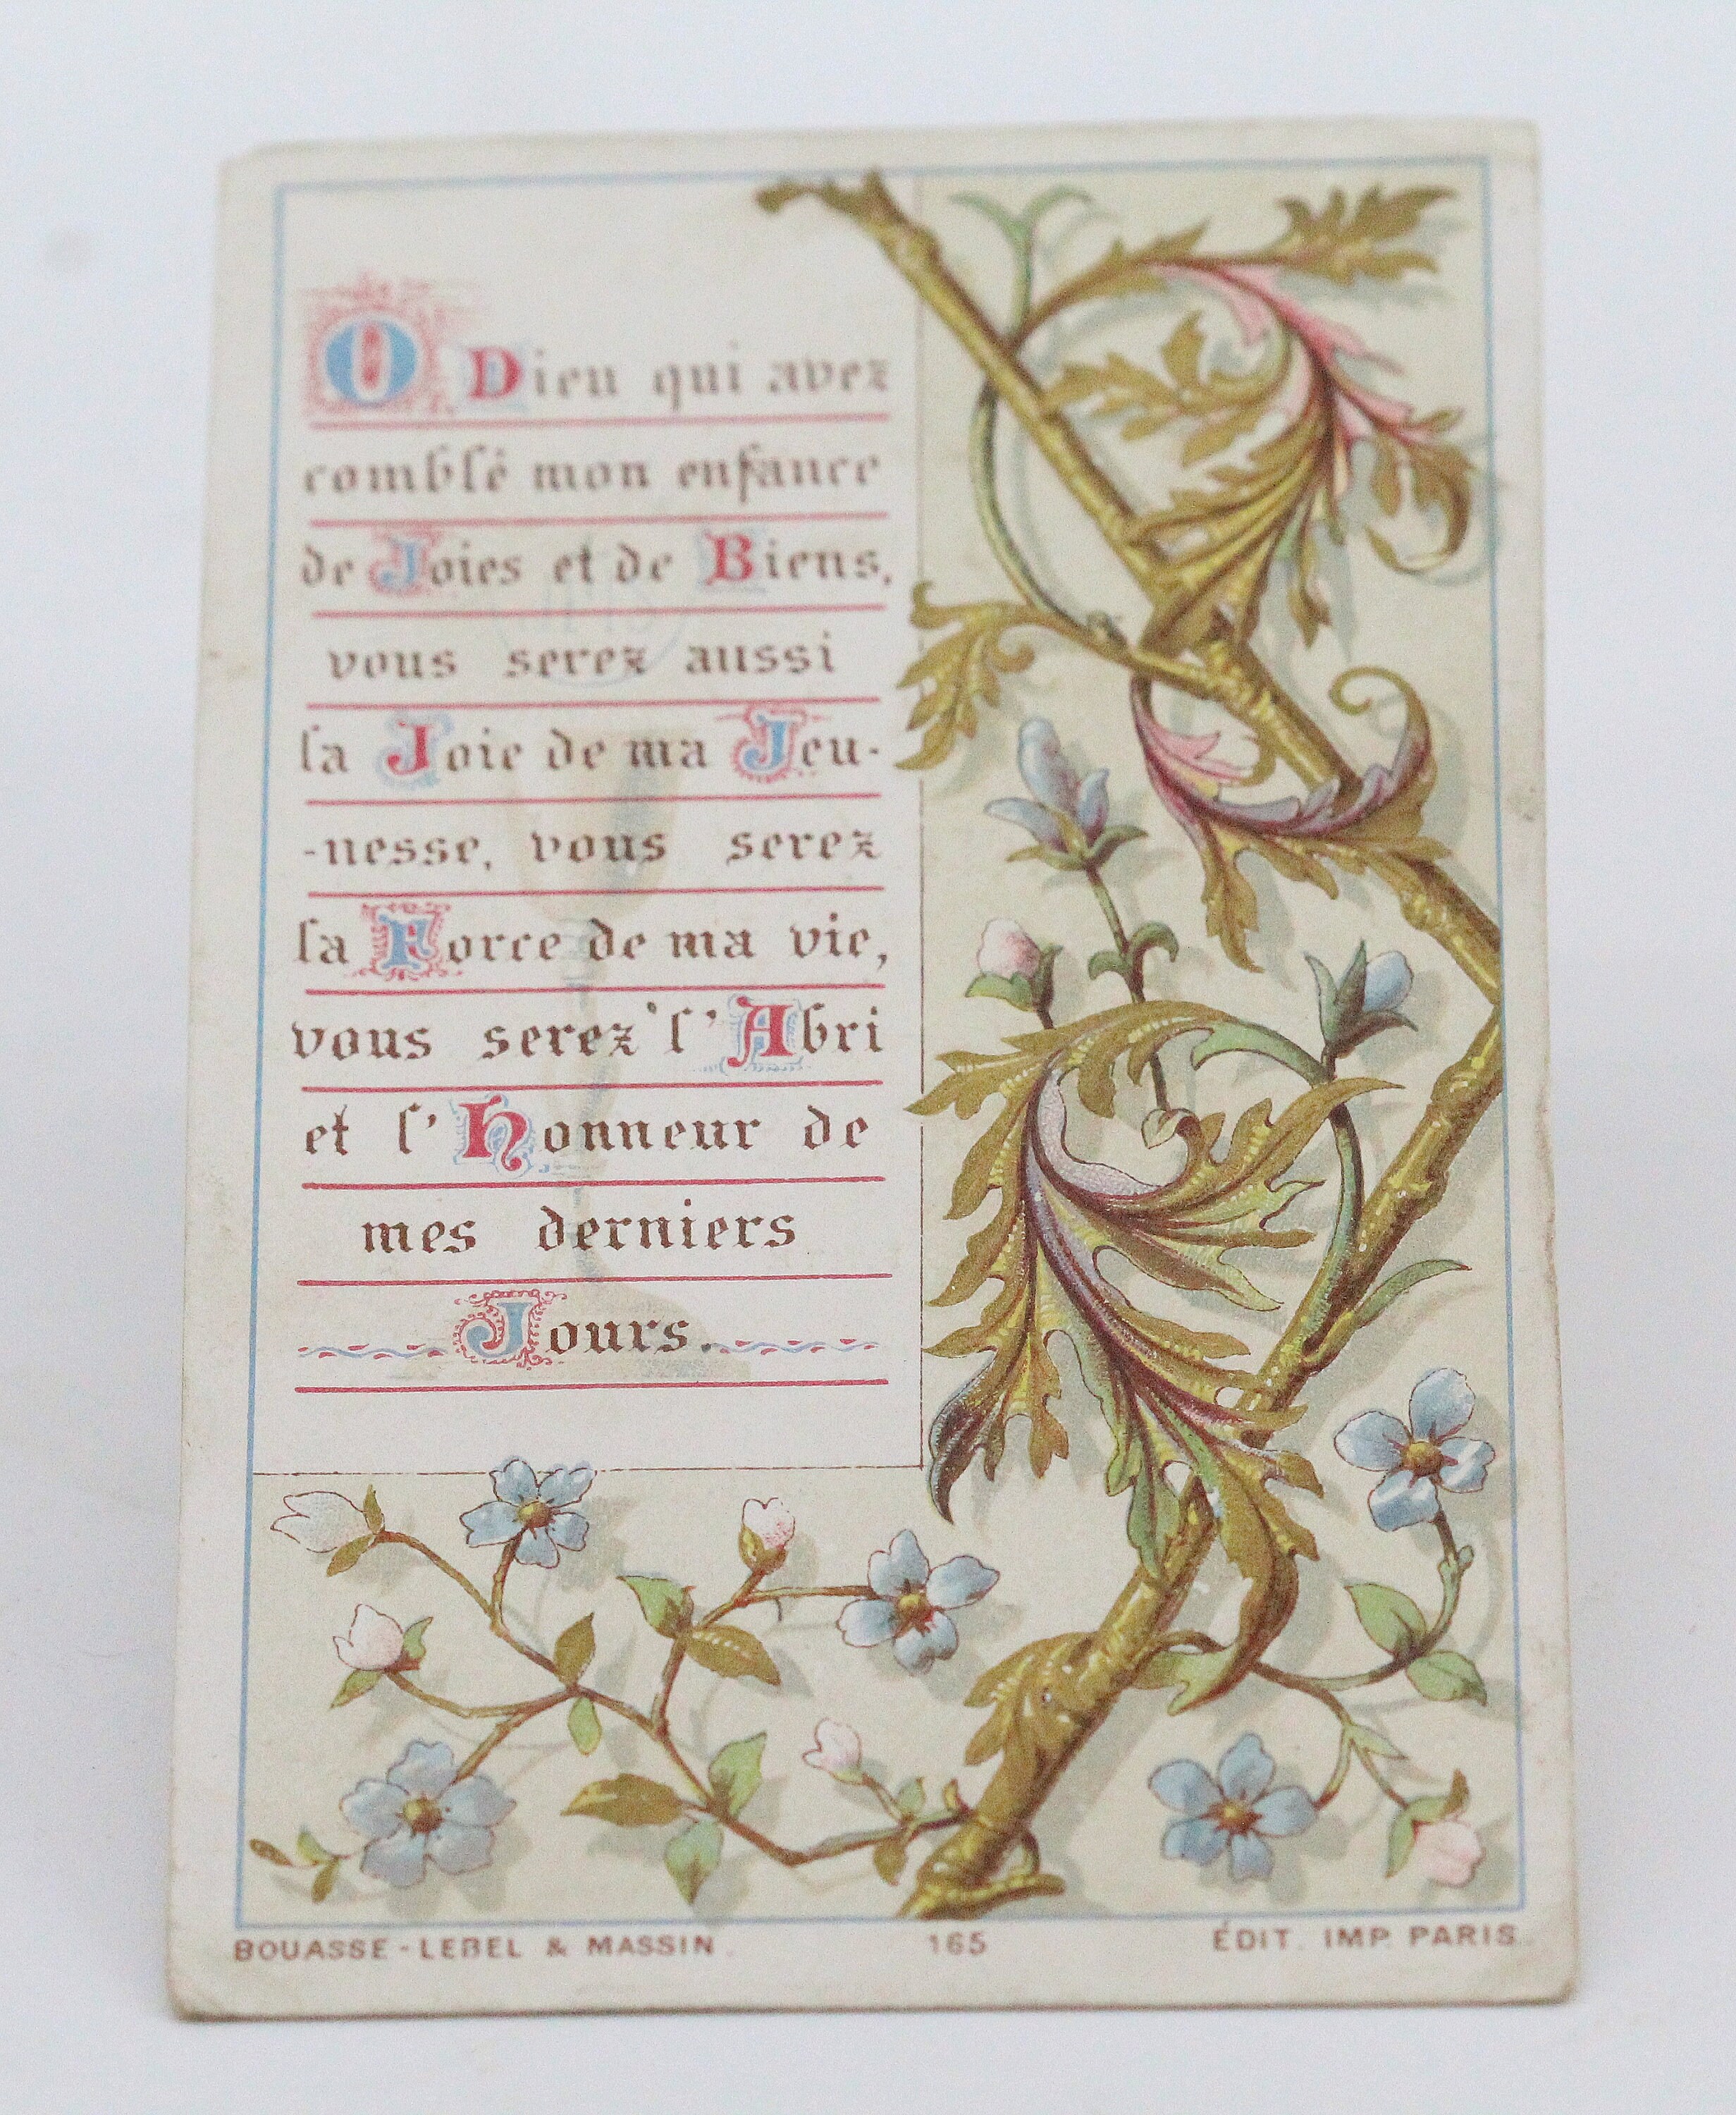 O Dieu qui avez
comblé mon enfance
de Joies et de Biens,
vous serez aussi
la Joie de ma Jeu-
-nesse, vous serez
la Force de ma vie,
vous serez l'Abri
et l'Honneur de
mes derniers
Jours.
BOUASSE-LEBEL & MASSIN. 165 ÉDIT. IMP. PARIS.